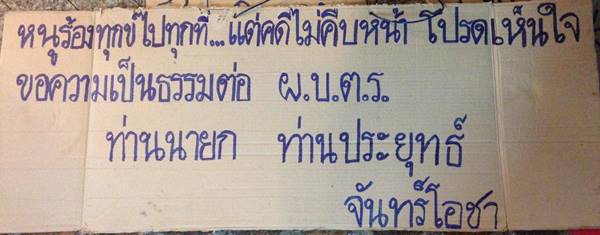 หนูร้องทุกข์ไปทุกที่...แต่คดีไม่คืบหน้า โปรดเห็นใจ
ขอความเป็นธรรมต่อ ผ.บ.ต.ร.
ท่านนายก ท่านประยุทธ์
จันทร์โอชา